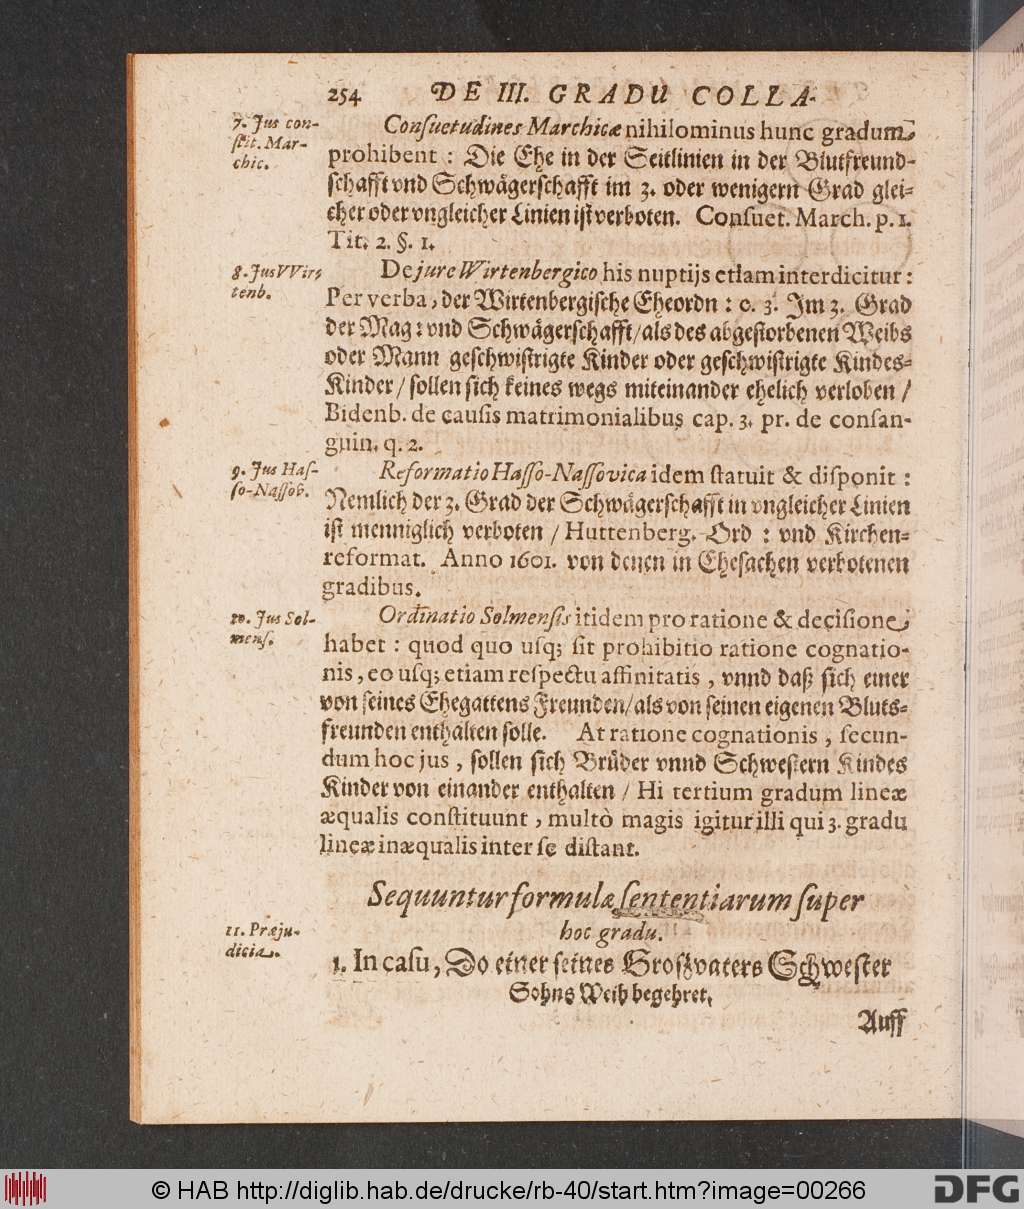 254 DE III. GRADU COLLA-
7. Jus con-
stit. Mar-
chic.
Consuetudines Marchicæ nihilominus hunc gradum
prohibent : Die Ehe in der Seitlinien in der Blutfreund-
schafft vnd Schwägerschafft im 3. oder wenigern Grad glei-
cher oder vngleicher Linien ist verboten. Consuet. March. p. 1.
Tit. 2. §. 1.
8. Jus VVirt
tenb.
De jure Wirtenbergico his nuptijs etiam interdicitur :
Per verba, der Wirtenbergische Eheordn : c. 3. Im 3. Grad
der Mag : vnd Schwägerschafft / als des abgestorbenen Weibs
oder Mann geschwistrigte Kinder oder geschwistrigte Kindes-
Kinder / sollen sich keines wegs miteinander ehelich verloben /
Bidenb. de causis matrimonialibus cap. 3. pr. de consan-
guin. q. 2.
9. Jus Has-
so-Nassov.
Reformatio Hasso-Nassovica idem statuit & disponit :
Nemlich der 3. Grad der Schwägerschafft in vngleicher Linien
ist menniglich verboten / Huttenberg. Ord : vnd Kirchen-
reformat. Anno 1601. von denen in Ehesachen verbotenen
gradibus.
10. Jus Sol-
mens.
Ordinatio Solmensis itidem pro ratione & decisione
habet : quod quo usq; sit prohibitio ratione cognatio-
nis, eo usq; etiam respectu affinitatis, vnnd daß sich einer
von seines Ehegattens Freunden / als von seinen eigenen Bluts-
freunden enthalten solle. At ratione cognationis, secun-
dum hoc jus, sollen sich Brüder vnnd Schwestern Kindes
Kinder von einander enthalten / Hi tertium gradum lineæ
æqualis constituunt, multò magis igitur illi qui 3. gradu
lineæ inæqualis inter se distant.
Sequuntur formulæ sententiarum super
hoc gradu.
11. Præju-
dicia.
1. In casu, Do einer seines Großvaters Schwester
Sohns Weib begehret.
Auff
© HAB http://diglib.hab.de/drucke/rb-40/start.htm?image=00266
DFG